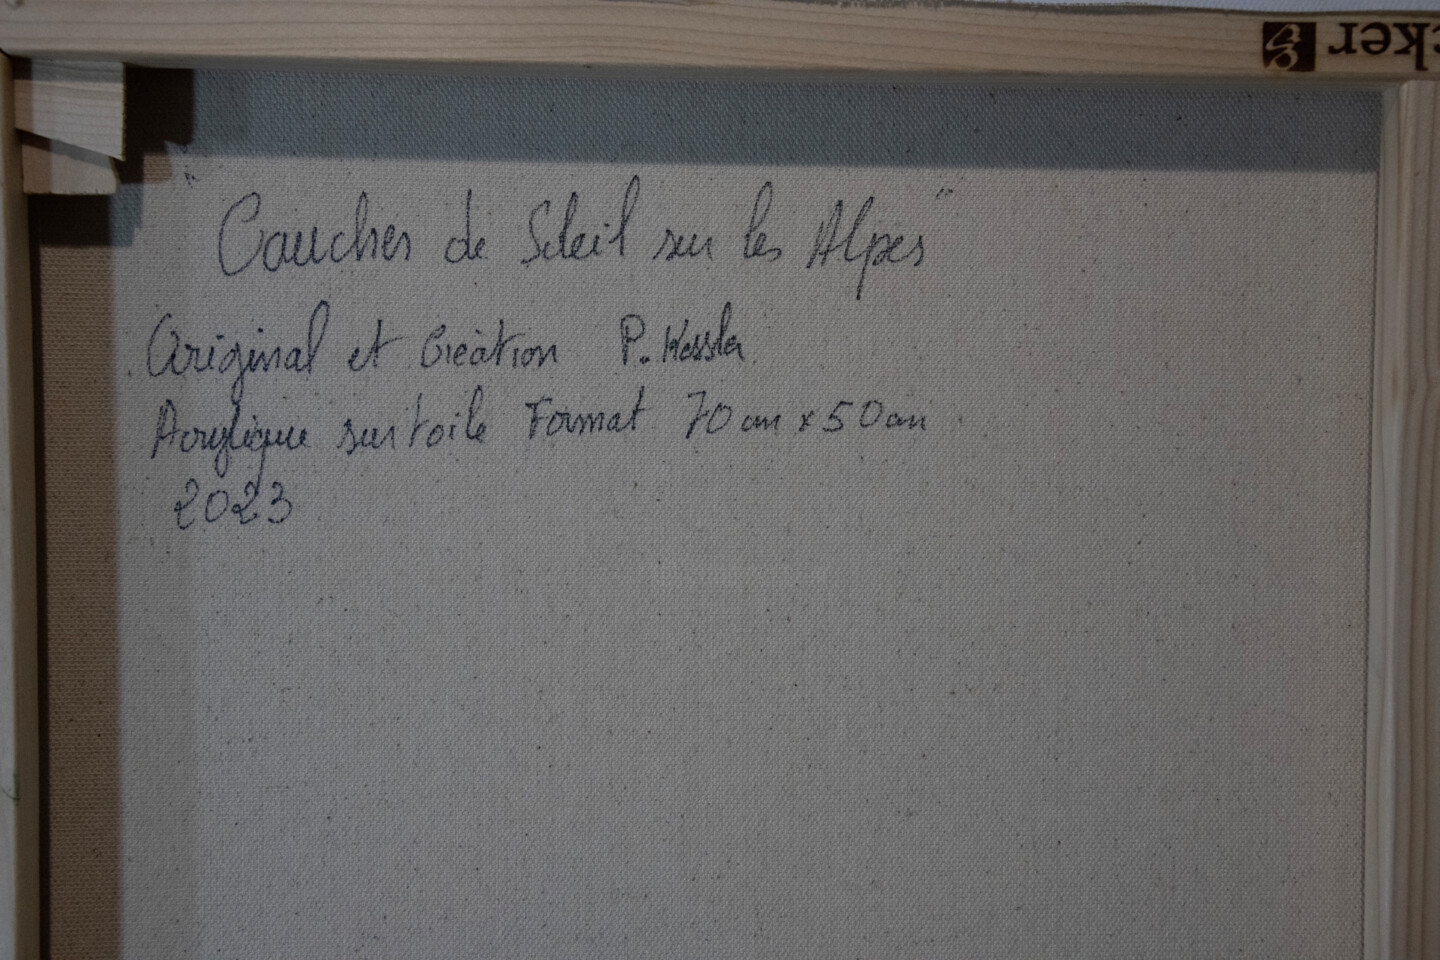 cker
"Couches de Soleil sur les Alpes"
Original et Création P. Kessler
Acrylique sur toile Format 70 cm x 50 cm
2023